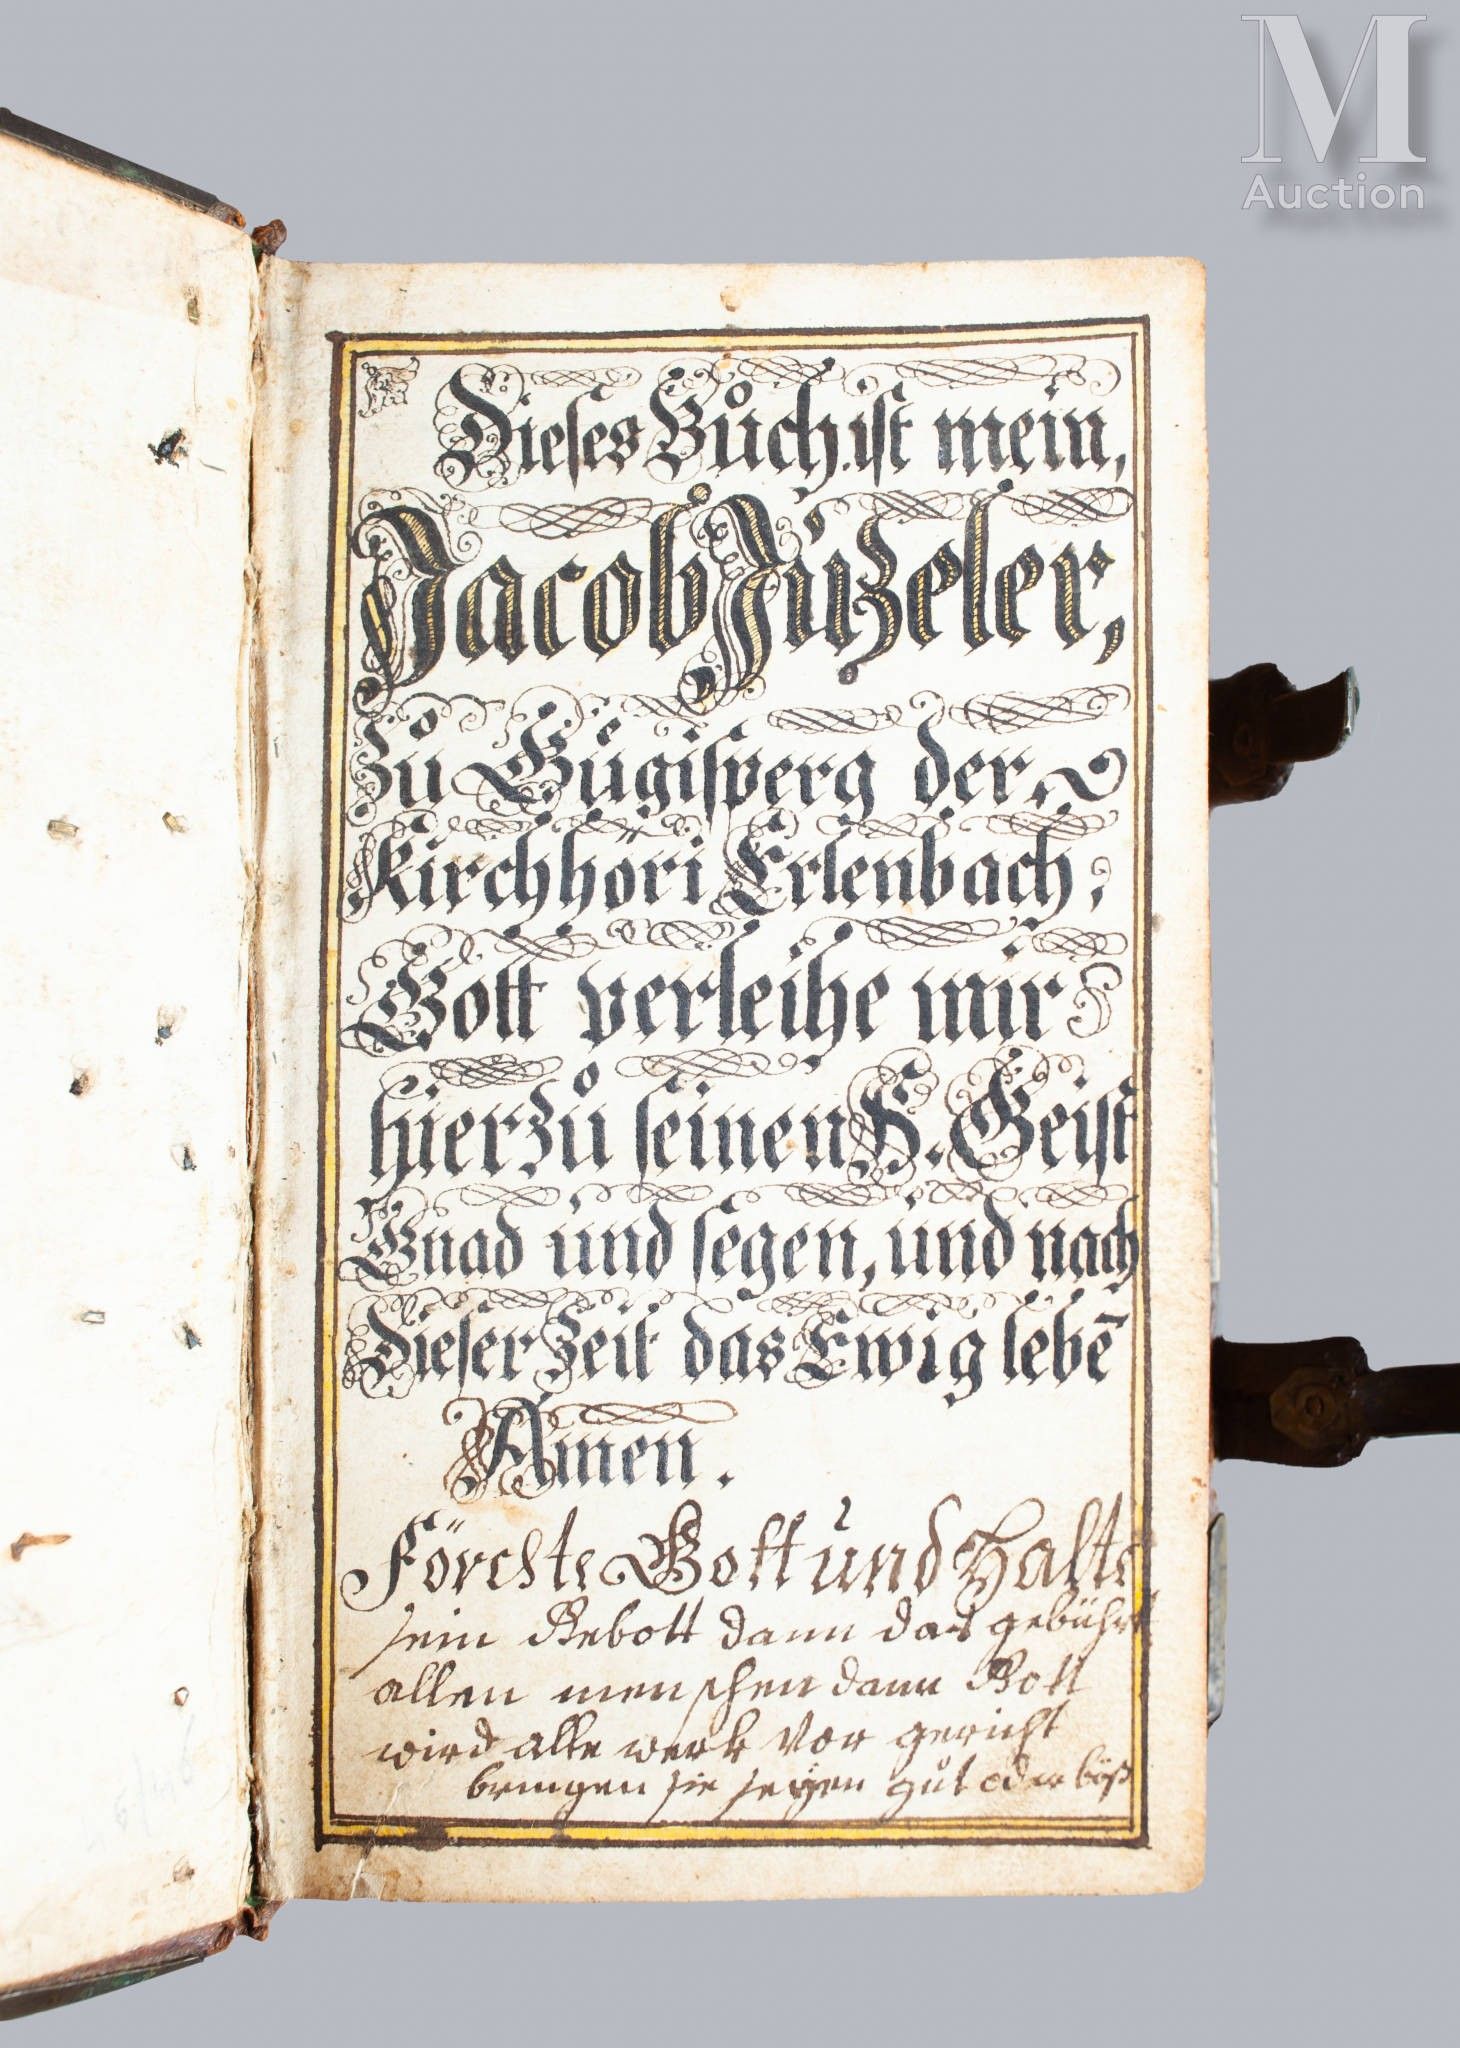 M
Auction
Dieses Bůch ist mein,
Jacob Jůzeler,
Zů Gůgisperg der
Kirchhöri Erlenbach,
Gott verleihe mir
hierzů seinen H. Geist
Gnad und segen, und nach
Dieser Zeit das Ewig lebē
Amen.
Förchte Gott und Halte
sein Gebott dann das gebührt
allen menschen dann Gott
wird alle werk vor gericht
bringen sie seyen gůt oder böß